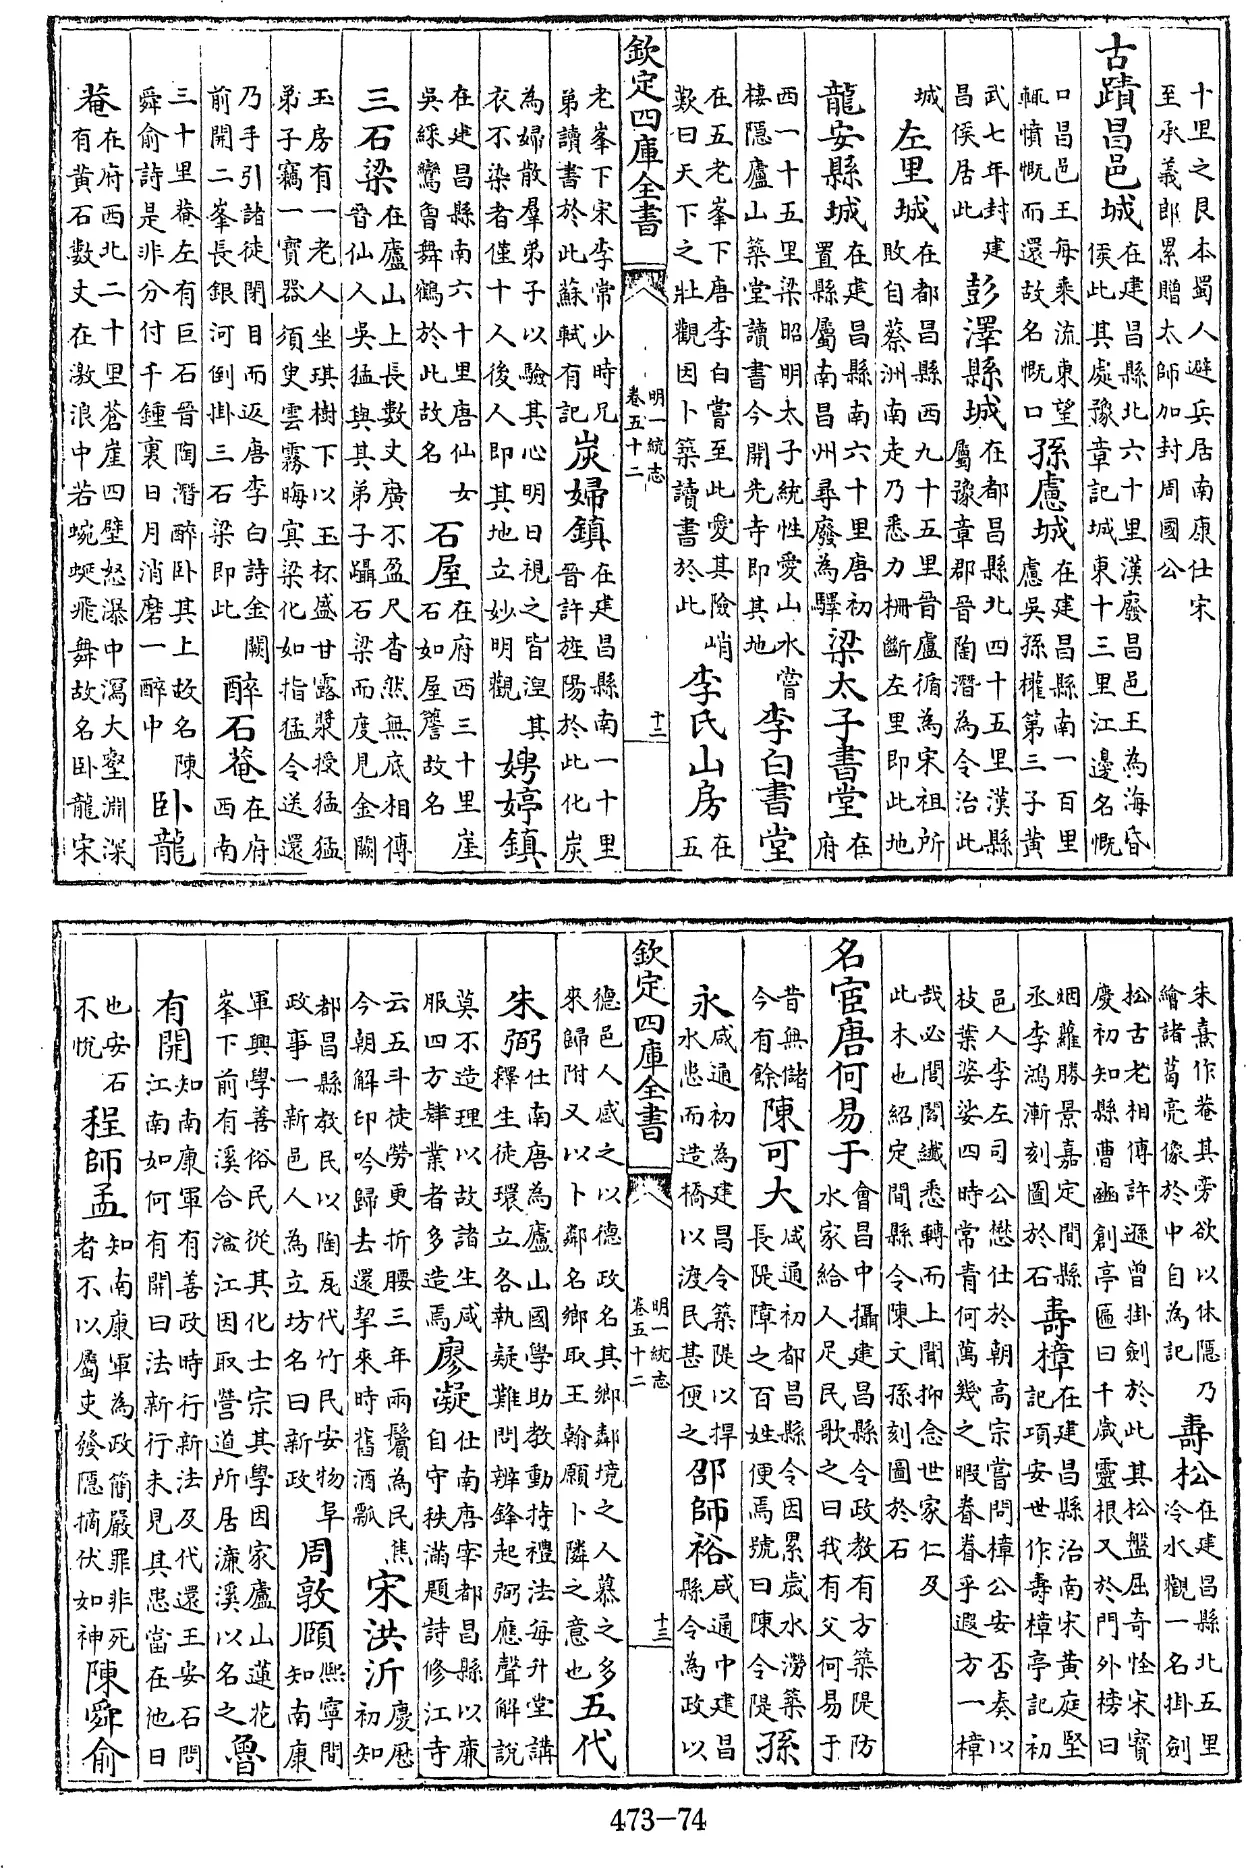 十里之艮本蜀人避兵居南康仕宋
至承義郎累贈太師加封周國公
古蹟昌邑城在建昌縣北六十里漢廢昌邑王為海昏
侯此其處豫章記城東十三里江邊名慨
口昌邑王每乗流東望
輒憤慨而還故名慨口孫慮城在建昌縣南一百里
慮吳孫權第三子黄
武七年封建
昌侯居此彭澤縣城在都昌縣北四十五里漢縣
屬豫章郡晉陶潛為令治此
城左里城在都昌縣西九十五里晉盧循為宋祖所
敗自蔡洲南走乃悉力柵斷左里即此地
龍安縣城在建昌縣南六十里唐初
置縣屬南昌州尋廢為驛梁太子書堂在
府
西一十五里梁昭明太子統性愛山水嘗
棲隱廬山築堂讀書今開先寺即其地李白書堂
在五老峯下唐李白嘗至此愛其險峭
歎曰天下之壯觀因卜築讀書於此李氏山房在
五
欽定四庫全書
明一統志
卷五十二
十二
老峯下宋李常少時兄
弟讀書於此蘇軾有記炭婦鎮在建昌縣南一十里
晉許旌陽於此化炭
為婦散羣弟子以驗其心明日視之皆湼其
衣不染者僅十人後人即其地立妙明觀娉婷鎮
在建昌縣南六十里唐仙女
吳綵鸞魯舞鶴於此故名石屋在府西三十里崖
石如屋簷故名
三石梁在廬山上長數丈廣不盈尺杳然無底相傳
晉仙人吳猛與其弟子躡石梁而度見金闕
玉房有一老人坐琪樹下以玉杯盛甘露漿授猛猛
弟子竊一寳器須臾雲霧晦冥梁化如指猛令送還
乃手引諸徒閉目而返唐李白詩金闕
前開二峯長銀河倒掛三石梁即此醉石菴在府
西南
三十里菴左有巨石晉陶潛醉卧其上故名陳
舜俞詩是非分付千鍾裏日月消磨一醉中卧龍
菴在府西北二十里蒼崖四壁怒瀑中瀉大壑淵深
有黄石數丈在激浪中若蜿蜒飛舞故名卧龍宋
朱熹作菴其旁欲以休隱乃
繪諸葛亮像於中自為記壽松在建昌縣北五里
冷水觀一名掛劍
松古老相傳許遜曾掛劍於此其松盤屈奇恠宋寳
慶初知縣曹豳創亭匾曰千歲靈根又於門外榜曰
烟蘿勝景嘉定間縣
丞李鴻漸刻圖於石壽樟在建昌縣治南宋黄庭堅
記項安世作壽樟亭記初
邑人李左司公懋仕於朝高宗嘗問樟公安否奏以
枝葉婆娑四時常青何萬幾之暇眷眷乎遐方一樟
哉必閭閻纎悉轉而上聞抑念世家仁及
此木也紹定間縣令陳文孫刻圖於石
名宦唐何易于會昌中攝建昌縣令政教有方築隄防
水家給人足民歌之曰我有父何易于
昔無儲
今有餘陳可大咸通初都昌縣令因累歲水澇築
長隄障之百姓便焉號曰陳令隄孫
永咸通初為建昌令築隄以捍
水患而造橋以渡民甚便之邵師裕咸通中建昌
縣令為政以
欽定四庫全書
明一統志
卷五十二
十三
德邑人感之以德政名其鄉鄰境之人慕之多
來歸附又以卜鄰名鄉取王翰願卜隣之意也五代
朱弼仕南唐為廬山國學助教動持禮法每升堂講
釋生徒環立各執疑難問辨鋒起弼應聲解說
莫不造理以故諸生咸
服四方肄業者多造焉廖凝仕南唐宰都昌縣以亷
自守秩滿題詩修江寺
云五斗徒勞更折腰三年兩鬢為民焦
今朝解印吟歸去還挈來時舊酒瓢宋洪沂慶厯
初知
都昌縣教民以陶瓦代竹民安物阜
政事一新邑人為立坊名曰新政周敦頤熙寧間
知南康
軍興學善俗民從其化士宗其學因家廬山蓮花
峯下前有溪合湓江因取營道所居濂溪以名之魯
有開知南康軍有善政時行新法及代還王安石問
江南如何有開曰法新行未見其患當在他日
也安石
不悅程師孟知南康軍為政簡嚴罪非死
者不以屬吏發隠摘伏如神陳舜俞
473-74